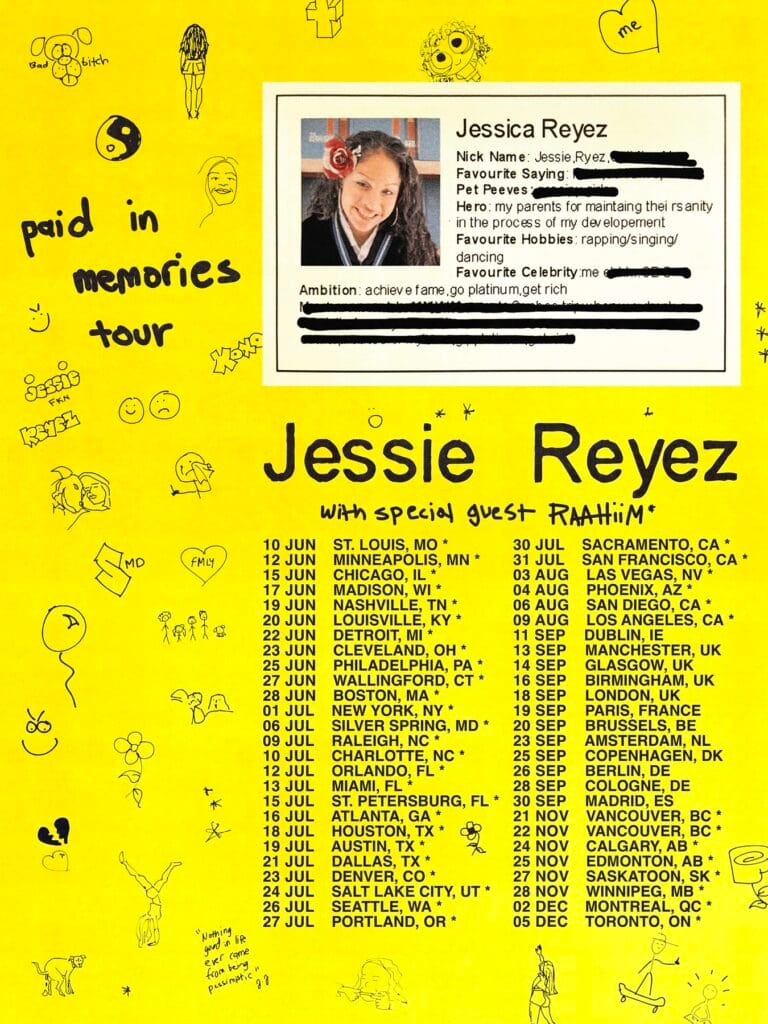 me
Bad bitch
paid in
memories
tour
Jessica Reyez
Nick Name: Jessie,Ryez,
Favourite Saying:
Pet Peeves:
Hero: my parents for maintaing thei rsanity
in the process of my developement
Favourite Hobbies: rapping/singing/
dancing
Favourite Celebrity:me
Ambition: achieve fame,go platinum,get rich
XOXO
Jessie
FKN
REYEZ
Jessie Reyez
with special guest RAAHiiM*
SMD
FMLY
10 JUN ST. LOUIS, MO *
12 JUN MINNEAPOLIS, MN *
15 JUN CHICAGO, IL *
17 JUN MADISON, WI *
19 JUN NASHVILLE, TN *
20 JUN LOUISVILLE, KY *
22 JUN DETROIT, MI *
23 JUN CLEVELAND, OH *
25 JUN PHILADELPHIA, PA *
27 JUN WALLINGFORD, CT *
28 JUN BOSTON, MA *
01 JUL NEW YORK, NY *
06 JUL SILVER SPRING, MD *
09 JUL RALEIGH, NC *
10 JUL CHARLOTTE, NC *
12 JUL ORLANDO, FL *
13 JUL MIAMI, FL *
15 JUL ST. PETERSBURG, FL *
16 JUL ATLANTA, GA *
18 JUL HOUSTON, TX *
19 JUL AUSTIN, TX *
21 JUL DALLAS, TX *
23 JUL DENVER, CO *
24 JUL SALT LAKE CITY, UT *
26 JUL SEATTLE, WA *
27 JUL PORTLAND, OR *
30 JUL SACRAMENTO, CA *
31 JUL SAN FRANCISCO, CA *
03 AUG LAS VEGAS, NV *
04 AUG PHOENIX, AZ *
06 AUG SAN DIEGO, CA *
09 AUG LOS ANGELES, CA *
11 SEP DUBLIN, IE
13 SEP MANCHESTER, UK
14 SEP GLASGOW, UK
16 SEP BIRMINGHAM, UK
18 SEP LONDON, UK
19 SEP PARIS, FRANCE
20 SEP BRUSSELS, BE
23 SEP AMSTERDAM, NL
25 SEP COPENHAGEN, DK
26 SEP BERLIN, DE
28 SEP COLOGNE, DE
30 SEP MADRID, ES
21 NOV VANCOUVER, BC *
22 NOV VANCOUVER, BC *
24 NOV CALGARY, AB *
25 NOV EDMONTON, AB *
27 NOV SASKATOON, SK *
28 NOV WINNIPEG, MB *
02 DEC MONTREAL, QC *
05 DEC TORONTO, ON *
"Nothing
good in life
ever came
from being
pussimatic"